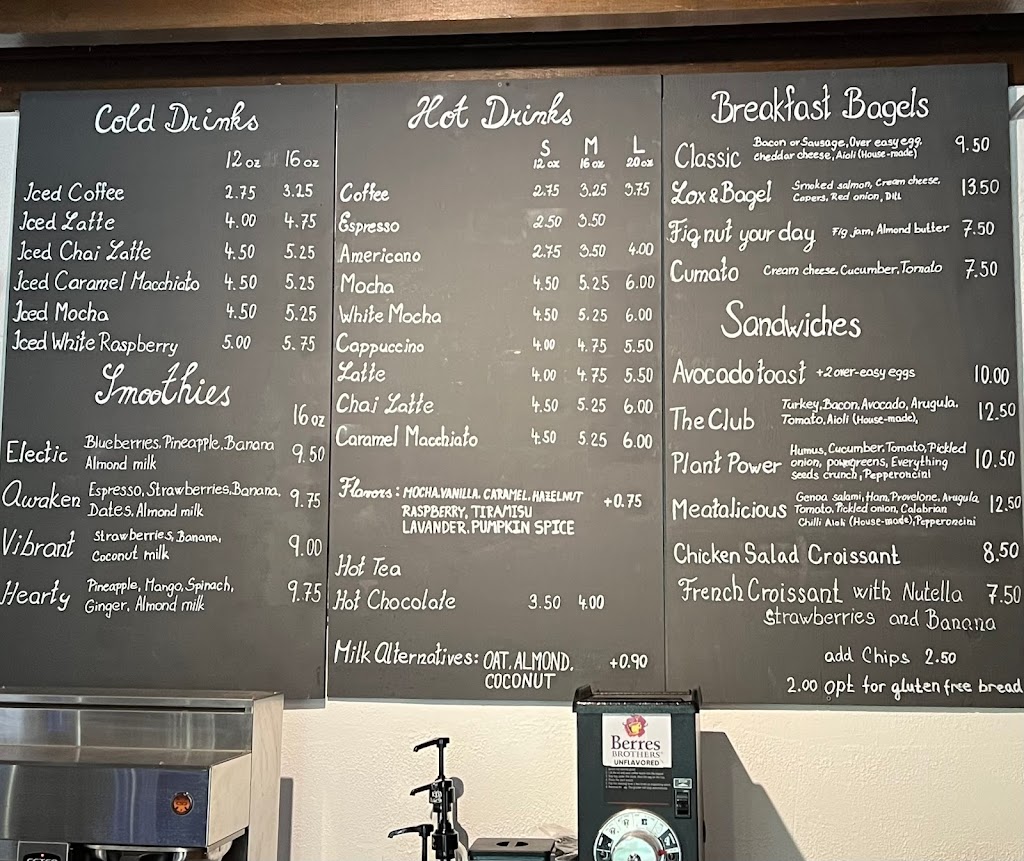 Cold Drinks
12 oz 16 oz
Iced Coffee 2.75 3.25
Iced Latte 4.00 4.75
Iced Chai Latte 4.50 5.25
Iced Caramel Macchiato 4.50 5.25
Iced Mocha 4.50 5.25
Iced White Raspberry 5.00 5.75
Smoothies
16 oz
Electic Blueberries, Pineapple, Banana 9.50
Almond milk
Awaken Espresso, Strawberries, Banana, 9.75
Dates, Almond milk
Vibrant Strawberries, Banana, 9.00
Coconut milk
Hearty Pineapple, Mango, Spinach, 9.75
Ginger, Almond milk
Hot Drinks
S M L
12 oz 16 oz 20 oz
Coffee 2.75 3.25 3.75
Espresso 2.50 3.50
Americano 2.75 3.50 4.00
Mocha 4.50 5.25 6.00
White Mocha 4.50 5.25 6.00
Cappuccino 4.00 4.75 5.50
Latte 4.00 4.75 5.50
Chai Latte 4.50 5.25 6.00
Caramel Macchiato 4.50 5.25 6.00
Flavors: MOCHA, VANILLA, CARAMEL, HAZELNUT +0.75
RASPBERRY, TIRAMISU
LAVANDER, PUMPKIN SPICE
Hot Tea
Hot Chocolate 3.50 4.00
Milk Alternatives: OAT, ALMOND, +0.90
COCONUT
Breakfast Bagels
Classic Bacon or Sausage, Over easy egg, 9.50
cheddar cheese, Aioli (House-made)
Lox & Bagel Smoked salmon, Cream cheese, 13.50
Capers, Red onion, Dill
Fig nut your day Fig jam, Almond butter 7.50
Cumato Cream cheese, Cucumber, Tomato 7.50
Sandwiches
Avocado toast +2 over-easy eggs 10.00
The Club Turkey, Bacon, Avocado, Arugula, 12.50
Tomato, Aioli (House-made),
Plant Power Humus, Cucumber, Tomato, Pickled 10.50
onion, powergreens, Everything
seeds crunch, Pepperoncini
Meatalicious Genoa salami, Ham, Provelone, Arugula 12.50
Tomato, Pickled onion, Calabrian
Chilli Aioli (House-made), Pepperoncini
Chicken Salad Croissant 8.50
French Croissant with Nutella 7.50
Strawberries and Banana
add Chips 2.50
2.00 opt for gluten free bread
Berres
BROTHERS
UNFLAVORED